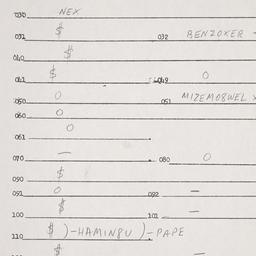 030 NEX
031 $ 032 BENZOKER -
040 $
041 $ 042 0
050 0 051 MIZEMOBWEL
060 0
061 0
070 — 080 0
090 $
091 0 092 —
100 $ 101 —
110 $ )-HAMINGU )-PAPE
$ —